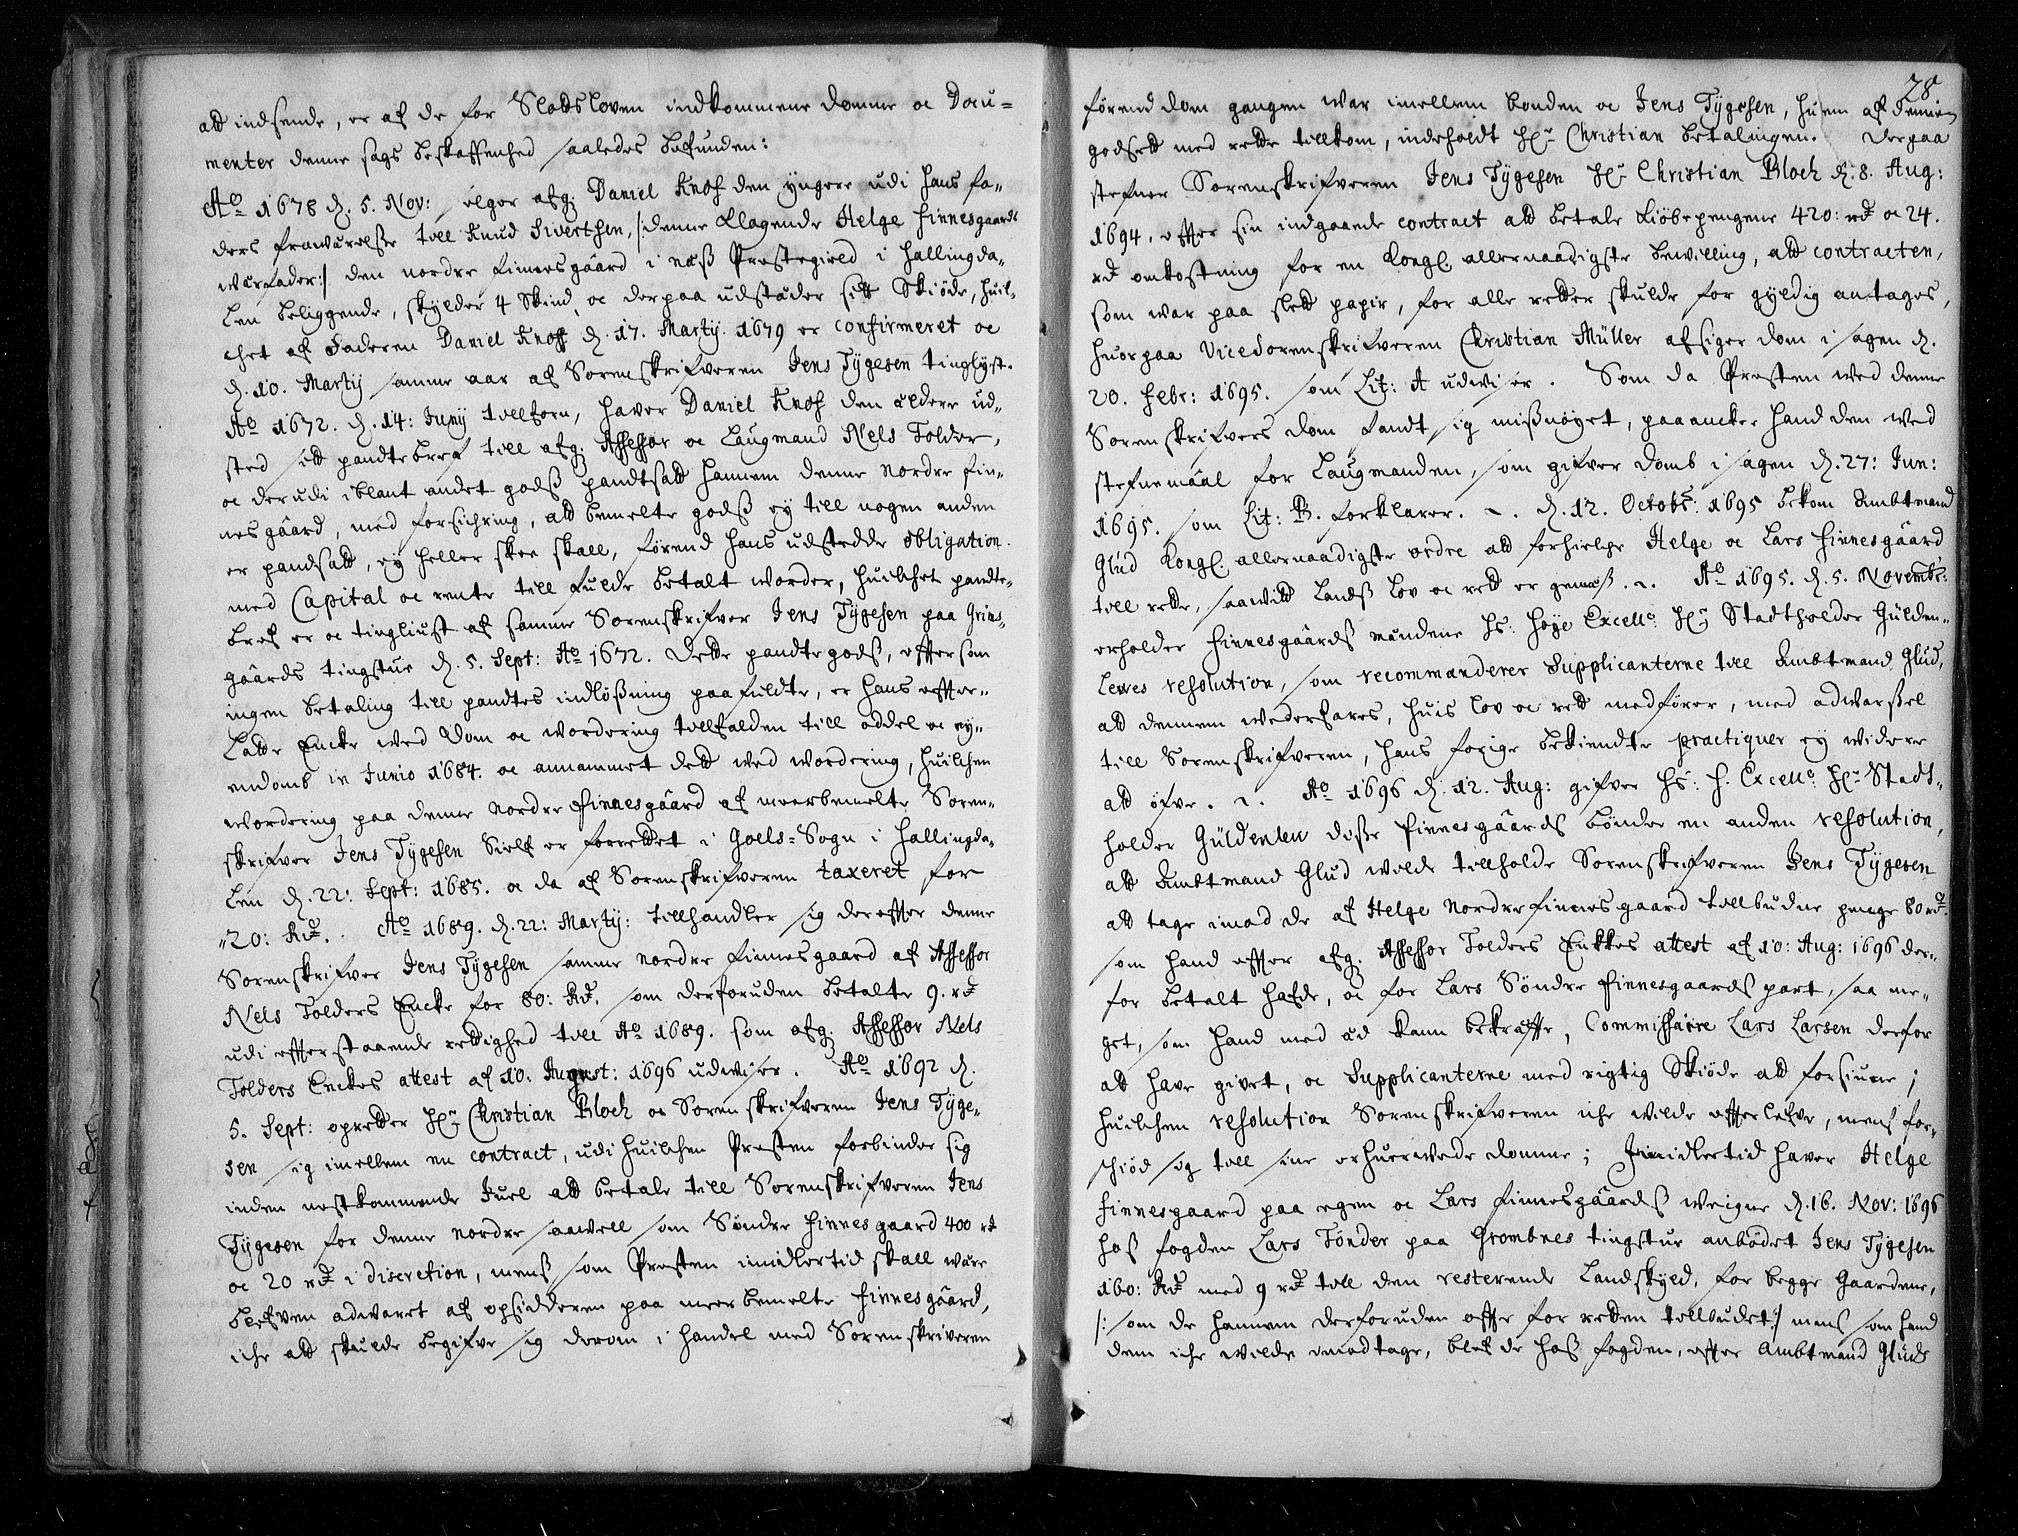 att indsende, er af de for Slotsloven indkommene domme oc Docu-
menter denne sags beskaffenhed saaledes befunden:
Ao 1678 d. 5. Nov: selger afg. Daniel Knof den yngere udi hans fa-
ders frawærelsse till Knud Siverthsen, /:denne Klagende Helge Finnesgaards
Wærfader:/ den nordre Finnesgaard i Næss Prestegield i Hallingda-
len beliggende, skylder 4 Skind, oc derpaa udstæder sitt Skiøde, huil-
chet af Faderen Daniel Knoff d. 17. Martij 1679 er confirmeret oc
d. 20. Martij samme aar af Sorenskrifveren Jens Tÿgesen tinglyst.
Ao 1672. d. 14: Junij tillforn, haver Daniel Knof den eldere ud-
sted sitt pandtebref till afg. Assessor oc Laugmand Nels Tolder,
oc derudi iblant andet godss pandtsatt hannem denne nordre Fin-
nesgaard, med forsichring, att bemelte godss ey till nogen anden
er pandsatt, ey heller skee skall, førend hans udstedde obligation
med Capital oc rente till fulde betalt worder, huilchet pandte-
bref er oc tingliust af samme Sorenskrifver Jens Tÿgesen paa Grims-
gaards tingstue d. 5. Sept: Ao 1672. Dette pandtegodss, efftersom
ingen betaling till pandtes indløssning paafuldte, er hans effter-
latte Encke wed Dom oc wordering tillfalden till oddel oc ey-
endomb in Junio 1684. oc annammet dett wed wordering, huilchen
wordering paa denne nordre Finnesgaard af meerbemelte Soren-
skrifver Jens Tÿgesen Sielf er forrettet i Goels-Sogn i Hallingda-
len d. 22: Sept: 1685. oc da af Sorenskrifveren taxeret for
120: Rd. Ao 1689. d. 22: Martij: tillhandler sig dereffter denne
Sorenskrifver Jens Tÿgesen samme nordre Finnesgaard af Assessor
Nels Tolders Encke for 80: Rd. som derforuden betalte 9. rd
udi effterstaaende rettighed till Ao 1689. som afg. Assessor Nels
Tolders Enckes attest af 10: August: 1696 udwiser. Ao 1692 d.
5. Sept: opretter Hr Christian Bloch oc Sorenskrifveren Jens Tÿge-
sen sig imellem en contract, udi huilchen Presten forbinder sig
inden nestkommende Juel att betale till Sorenskrifveren Jens
Tÿgesen for denne nordre saawell som Søndre Finnesgaard 400 rd
oc 20 rd i discretion, menss som Presten imidlertid skall være
blefven adwaret af opsidderen paa meerbemelte Finnesgaard,
iche att skulde begifve sig derom i handel med Sorenskriveren
28
førend dom gangen war imellem bonden oc Jens Tÿgesen, huem af dennem
godsett med rette tillkom, indeholdt Hr Christian betalingen. Derpaa
stefner Sorenskrifveren Jens Tÿgesen Hr Christian Bloch d. 8. Aug:
1694. effter sin indgaaede contract att betale kiøbepengene 420: rd oc 24.
rd omkostning for en Kongl. allernaadigste bewilling, att contracten,
som war paa slett papir, for alle retter skulde for gyldig antages,
huorpaa ViceSorenskrifveren Christian Müller afsiger dom i sagen d.
20. Febr: 1695. som Lit: A udwiser. Som da Presten wed denne
Sorenskrifvers dom fandt sig missnøyet, paaancker hand den wed
stefnemaal for Laugmanden, som gifver Domb i sagen d. 27: Jun:
1695. som Lit: B. forklarer. d. 12. Octobr: 1695 bekom Ambtmand
Glud Kongl. allernaadigste ordre att forhielpe Helge oc Lars Finnesgaard
till rette, saawitt Landss lov oc rett er gemæss. Ao 1695. d. 5. Novembr:
erholder Finnesgaards mændene Hs: Høye Excell: Hr Stadtholder Gülden-
lewes resolution, som recommanderer Supplicanterne till Ambtmand Glud,
att dennem wederfares, huis lov oc rett medfører, med adwarssel
till Sorenskrifveren, hans forige bekiendte practiquer ey widere
att øfve. Ao 1696 d. 12. Aug: gifver Hs: H. Excell: Hr Stadt-
holder Güldenlew disse Finnesgaards bønder en anden resolution,
att Ambtmand Glud wilde tillholde Sorenskrifveren Jens Tÿgesen
att tage imod de af Helge Nordre Finnesgaard tillbudne penge 80 rd.
som hand effter afg. Assessor Tolders Enckes attest af 10: Aug: 1696 der-
for betalt hafde, oc for Lars Søndre Finnesgaards part, saa me-
get, som hand med æd kann bekræffte, Commissaire Lars Larsen derfor
att have givet, oc Supplicanterne med rigtig Skiøde att forsiune;
huilchen resolution Sorenskrifveren iche wilde effterlefve, mens for-
schiød sig till sine erhuerwede domme; Imidlertid haver Helge
Finnesgaard paa egen oc Lars Finnesgaards weigne d. 16. Nov: 1696
hoss fogden Lars Tønder paa Grombnes tingstue anbødet Jens Tÿgesen
160: Rd med 9 rd till den resterende Landskyld, for begge Gaardene,
/: som de hannem derforuden ofte for retten tillbudet :/ mens som hand
dem iche wilde imodtage, blef de hoss fogden, effter Ambtmand Gluds